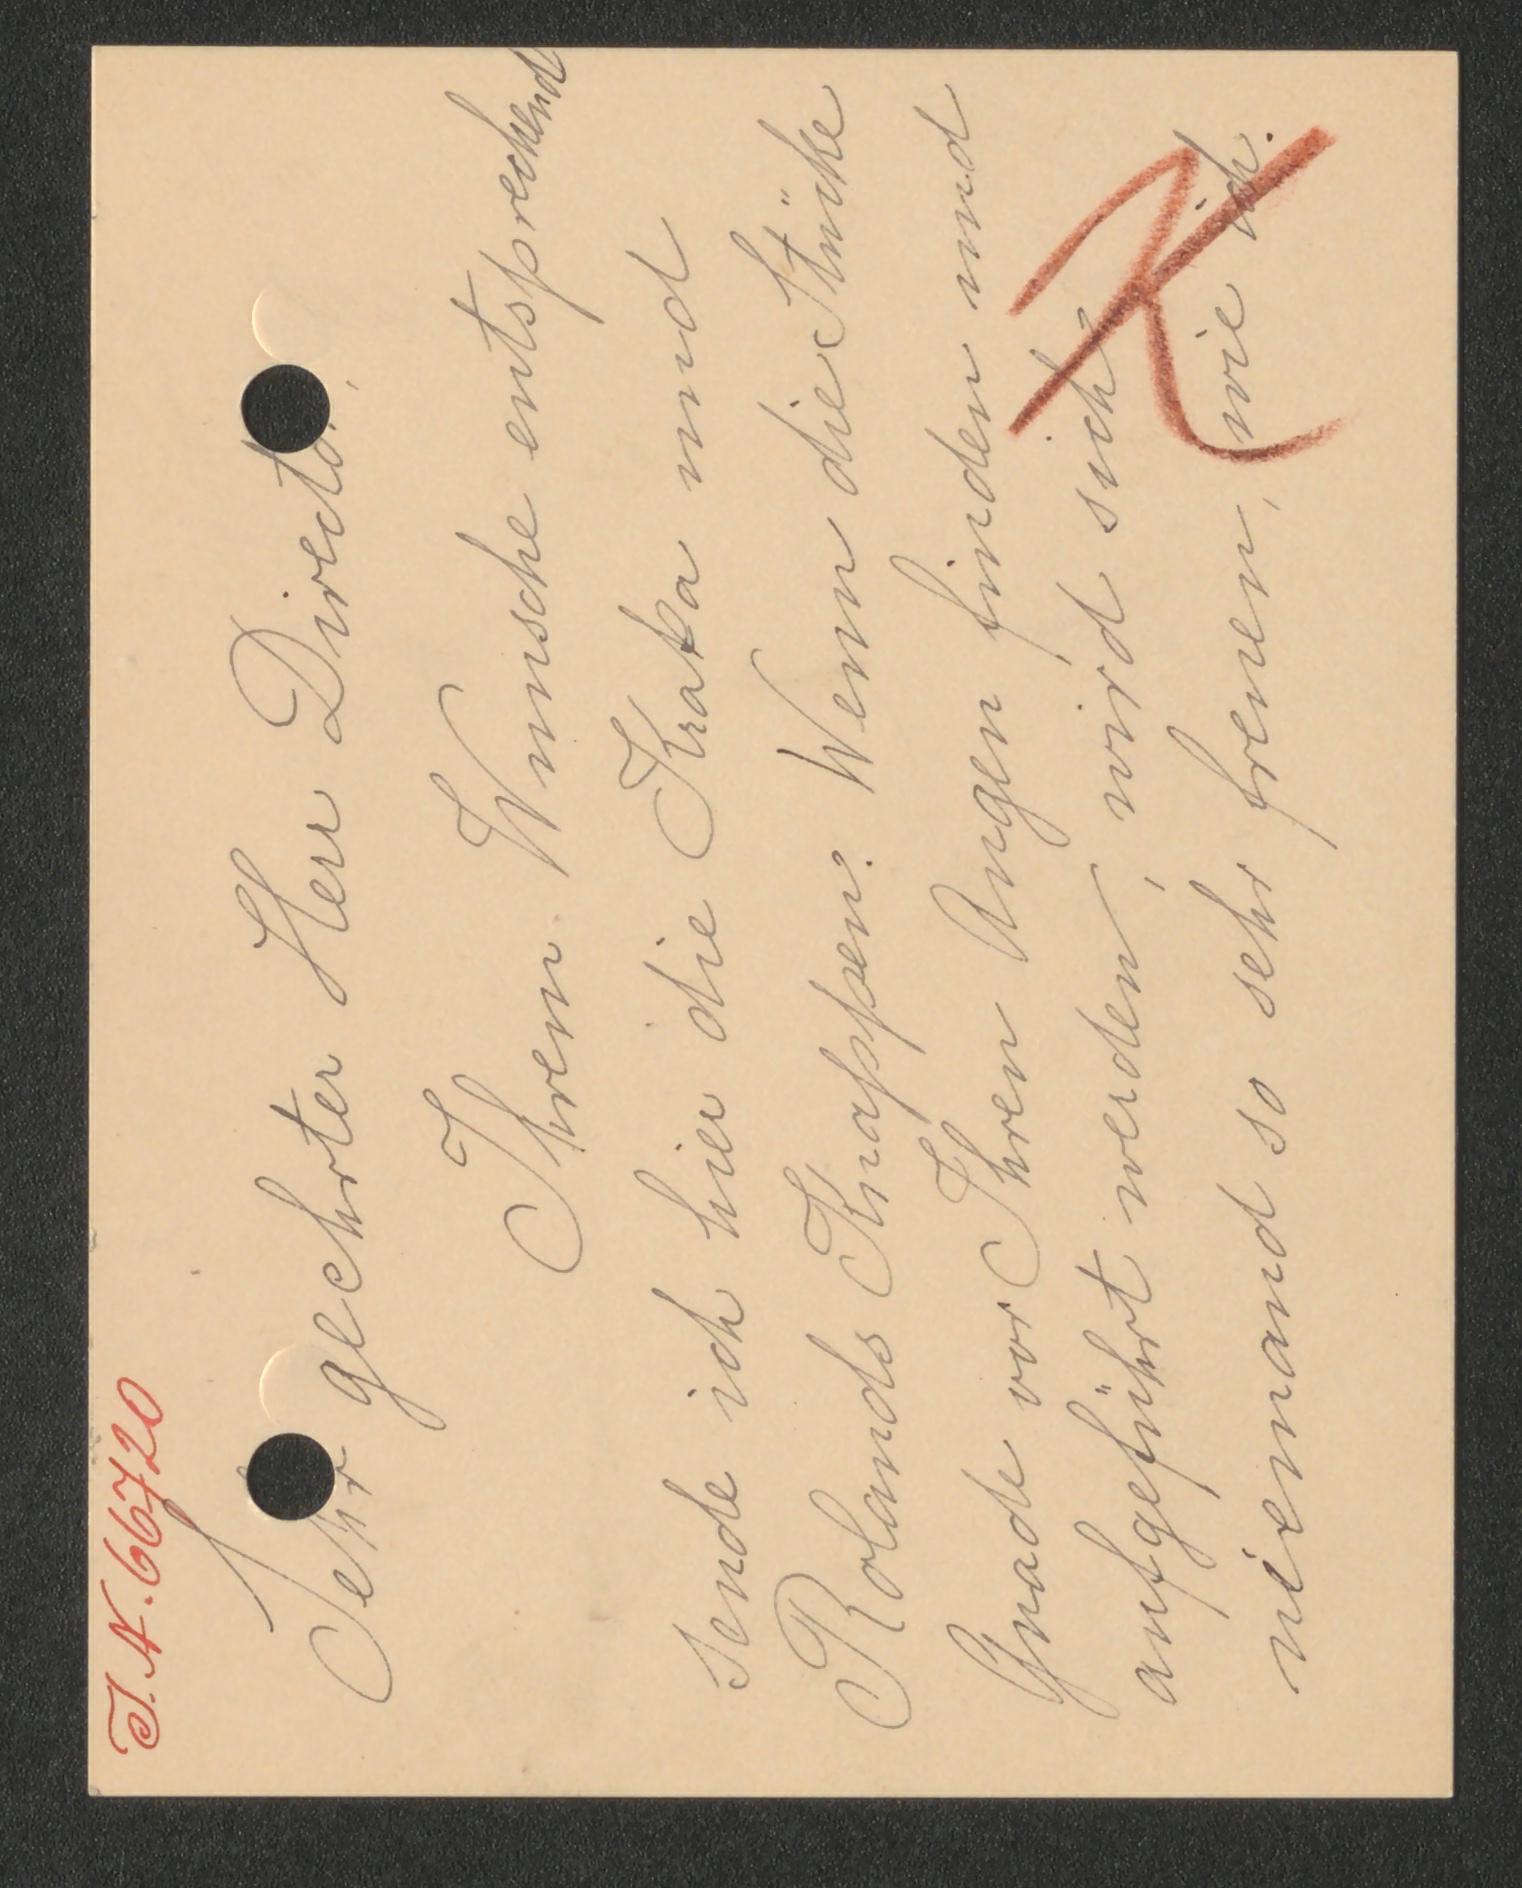 I. N. 66720
Sehr geehrter Herr Director,
Ihrem Wunsche entsprechend
sende ich hier die Kraka und
Rolands Knappen. Wenn die Stücke
Gnade vor Ihren Augen finden und
aufgeführt werden, wird sich
niemand so sehr freuen, wie ich.
K